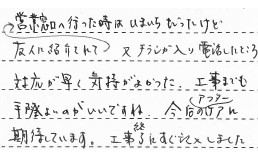 営業口へ行った時はいまいちだったけど
友人に紹介されて 又チラシが入り電話したところ
対応が早く気持がよかった。工事までも
手際よいのがいいですね 今后のアフターケアに
期待しています。工事終了にすぐ記入しました